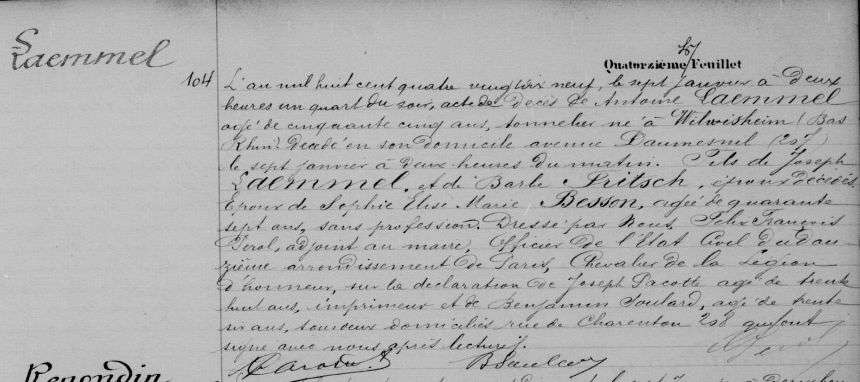 Laemmel
104
Quatorzième Feuillet
L'an mil huit cent quatre vingt dix neuf, le sept janvier à deux
heures un quart du soir, acte de décès de Antoine Laemmel
agé de cinquante cinq ans, tonnelier né à Wilwisheim (Bas
Rhin) décédé en son domicile avenue Daumesnil
le sept janvier à deux heures du matin. Fils de Joseph
Laemmel, et de Barbe Fritsch, époux décédés
Epoux de Sophie Elise Marie Besson, agée de quarante
sept ans, sans profession. Dressé par Nous, Felix François
adjoint au maire, Officier de l'Etat Civil du dou
zième arrondissement de Paris, Chevalier de la Légion
d'honneur, sur la déclaration de Joseph Pacotte agé de trente
huit ans, imprimeur et de Benjamin Soulard, agé de trente
six ans, tous deux domiciliés rue de Charenton 208 qui ont
signé avec nous après lecture.